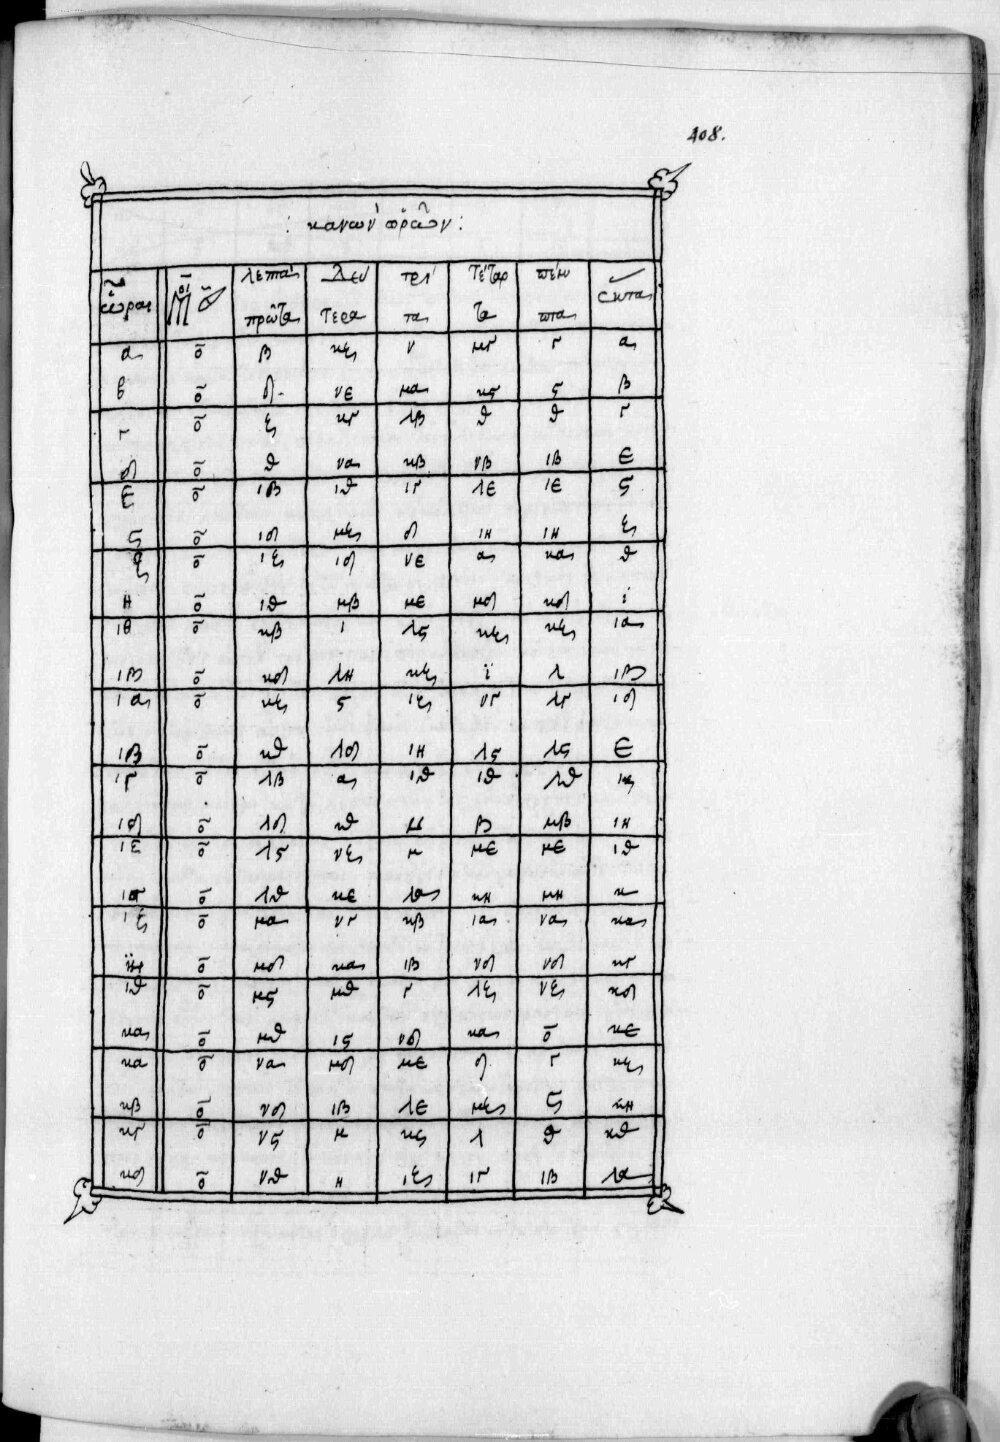 408.
: κανων ὡρῶν :
ὧραι μοι ο λεπτὰ πρῶτα Δεύτερα τρίτα τέταρτα πέμπτα ἕκτα
α ο̄ β κζ ν μγ γ α
β ο̄ δ νε μα κϛ ϛ β
γ ο̄ ζ κγ λβ θ θ γ
δ ο̄ θ να κβ νβ ιβ ε
ε ο̄ ιβ ιθ ιγ λε ιε ϛ
ϛ ο̄ ιδ μζ δ ιη ιη ζ
ζ ο̄ ιζ ιδ νε α κα θ
η ο̄ ιθ μβ με μδ κδ ϊ
ιθ ο̄ κβ ι λϛ κζ κζ ια
ιβ ο̄ κδ λη κζ ϊ λ ιβ
ια ο̄ κζ ϛ ιζ νγ λγ ιδ
ιβ ο̄ κθ λδ ιη λϛ λϛ ε
ιγ ο̄ λβ α ιθ ιθ λθ ιϛ
ιδ ο̄ λδ κθ μ β μβ ιη
ιε ο̄ λϛ νζ μ με με ιθ
ιϛ ο̄ λθ κε λα κη μη κ
ιζ ο̄ μα νγ κβ ια να κα
ιη ο̄ μδ κα ιβ νδ νδ κγ
ιθ ο̄ μϛ μθ γ λζ νζ κδ
κα ο̄ μθ ιϛ νδ κα ο̄ κε
κα ο̄ να μδ με δ γ κζ
κβ ο̄ νδ ιβ λε μζ ϛ κη
κγ ο̄ νϛ μ κϛ λ θ κθ
κδ ο̄ νθ η ιζ ιγ ιβ λα